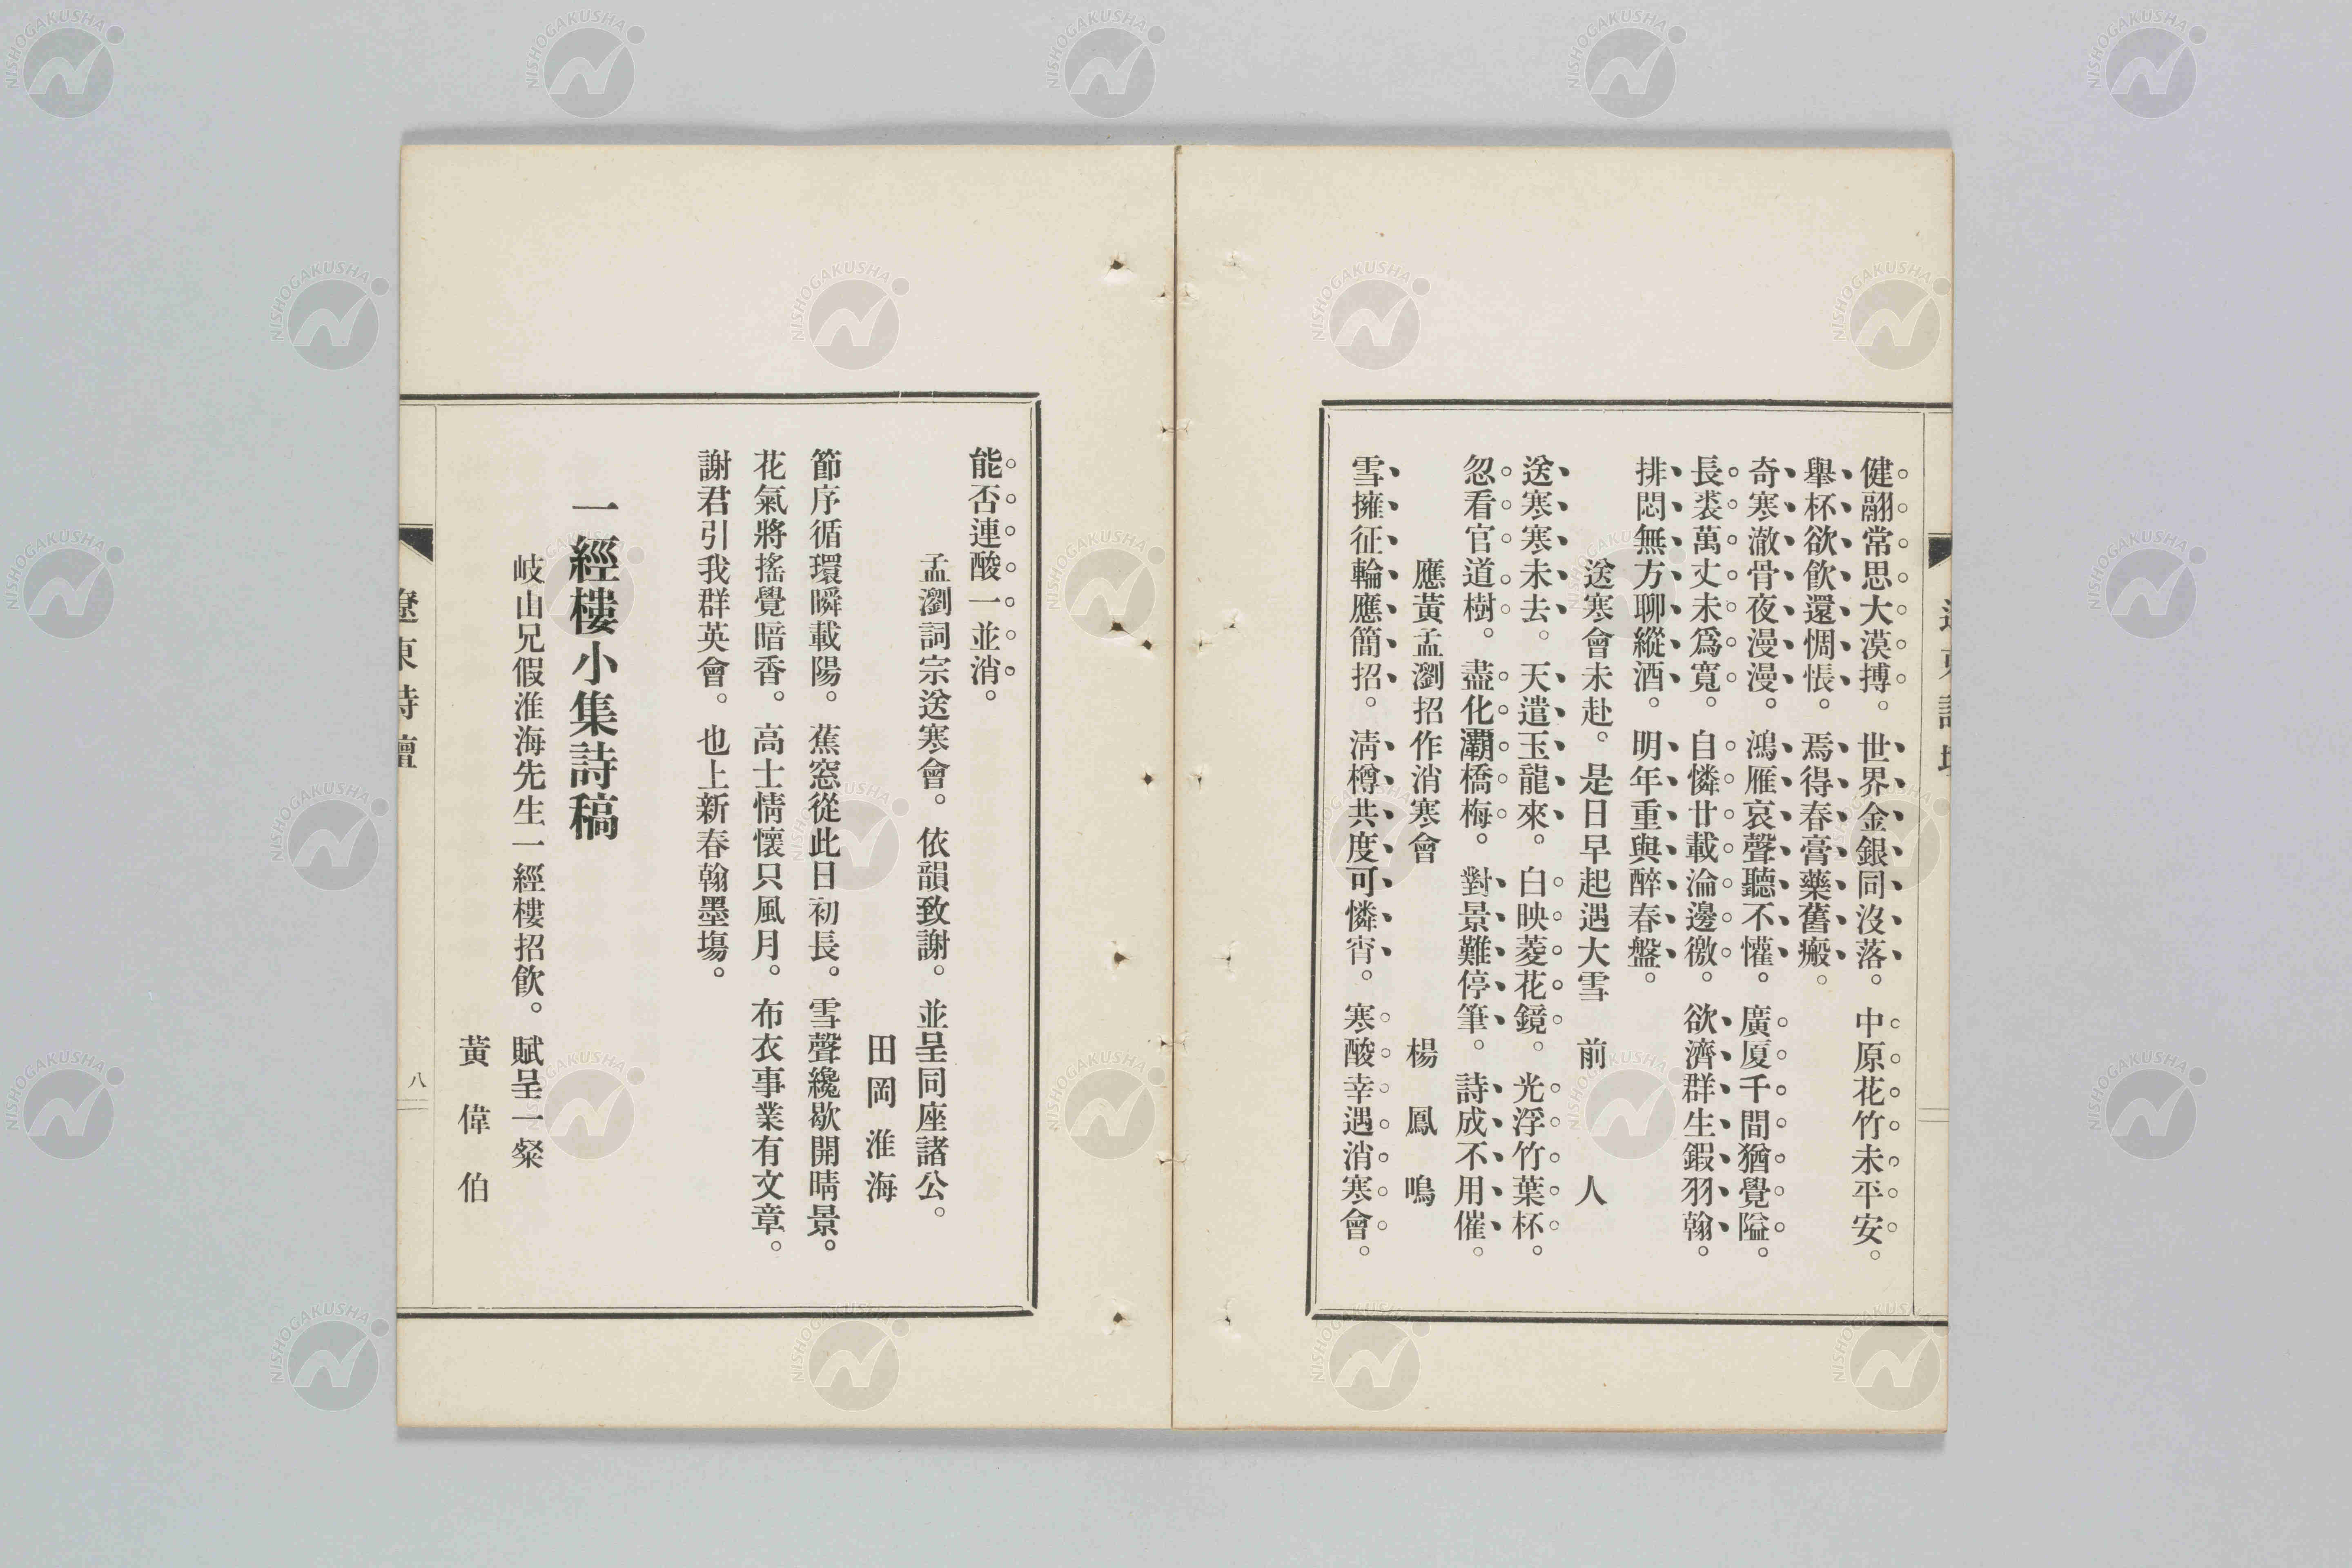 健翮常思大漠搏。世界金銀同沒落。中原花竹未平安。
舉杯欲飮還惆悵。焉得春膏藥舊瘢。
奇寒澈骨夜漫漫。鴻雁哀聲聽不懽。廣厦千間猶覺隘。
長裘萬丈未爲寬。自憐廿載淪邊徼。欲濟群生鍜羽翰。
排悶無方聊縱酒。明年重與醉春盤。
送寒會未赴。是日早起遇大雪 前人
送寒寒未去。天遣玉龍來。白映菱花鏡。光浮竹葉杯。
忽看官道樹。盡化灞橋梅。對景難停筆。詩成不用催。
應黃孟瀏招作消寒會 楊鳳鳴
雪擁征輪應簡招。淸樽共度可憐宵。寒酸幸遇消寒會。
能否連酸一並消。
孟瀏詞宗送寒會。依韻致謝。並呈同座諸公。
田岡淮海
節序循環瞬載陽。蕉窓從此日初長。雪聲纔歇開晴景。
花氣將搖覺暗香。高士情懷只風月。布衣事業有文章。
謝君引我群英會。也上新春翰墨塲。
一經樓小集詩稿
岐山兄假淮海先生一經樓招飮。賦呈一粲
黃偉伯
遼東詩壇
八
NISHOGAKUSHA